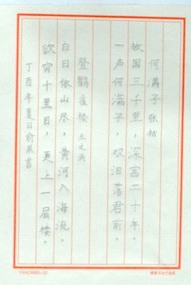 何满子 张祜
故国三千里，深宫二十年。
一声何满子，双泪落君前。
登鹳雀楼 王之涣
白日依山尽，黄河入海流。
欲穷千里目，更上一层楼。
丁酉年夏日